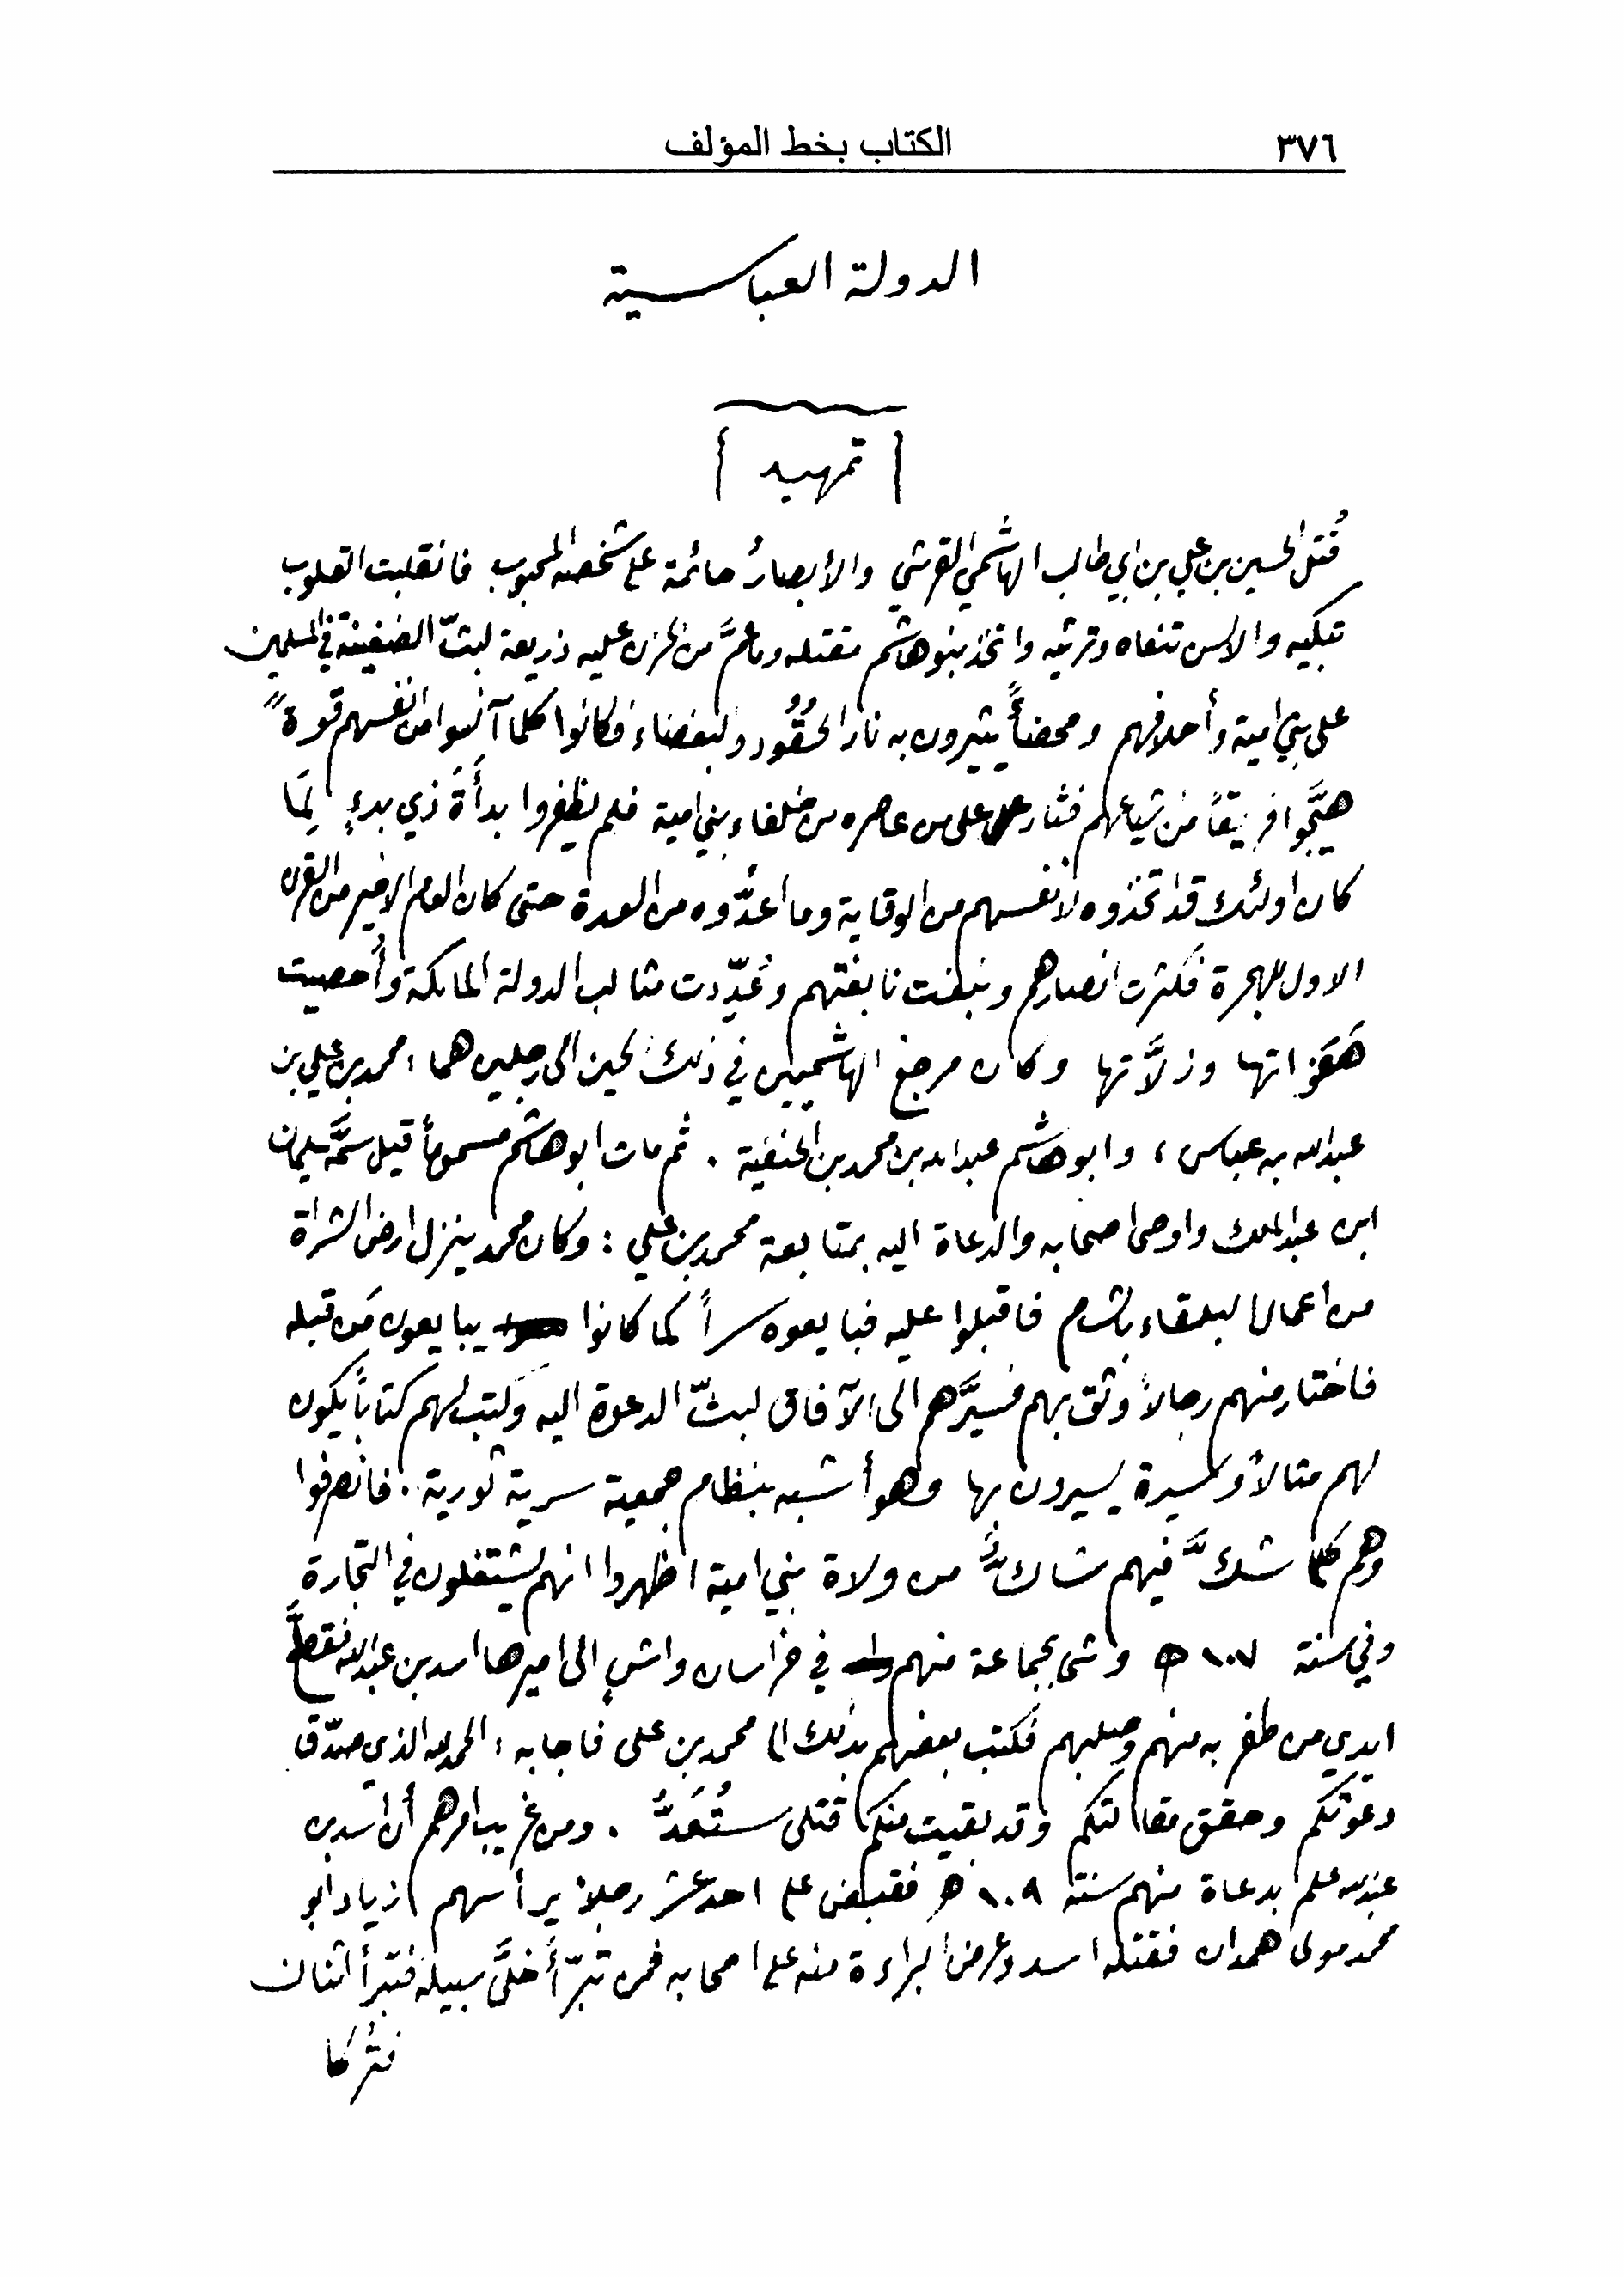 ٣٧٦
الكتاب بخط المؤلف
الدولة العباسية
تمهيد
قُتل الحسين بن علي بن ابي طالب الهاشمي القرشي والأبصارُ حائمة على شخصه المحبوب فانقلبت القلوب
تبكيه والالسن تنعاه وترثيه واتخذ بنو هاشم مقتله وما عمَّ من الحزن عليه ذريعة لبثّ الضغينة في المسلمين
على بني امية وأحلافهم ومحضأً يثيرون به نار الحُقُود والبغضاء فكانوا كلما آنسوا من انفسهم قوة ً
هيَّجوا فريقاً من شياعهم فثار على من عاصره من خلفاء بني امية فلم يظفروا بدأَةَ ذي بدءٍ لِمَا
كان اولئك قد اتخذوه لانفسهم من الوقاية وما اعدُّوه من العدة حتى كان العام الاخير من القرن
الاول للهجرة فكثرت انصارهم ونبغت نابغتهم وعُدِّدت مثالب الدولة المالكة وأُحصيت
هَفَواتها وزلاَّتها وكان مرجع الهاشميين في ذلك الحين الى رجلين هما : محمد بن علي بن
عبدالله بن عباس ، وابو هاشم عبدالله بن محمد بن الحنفية . ثم مات ابو هاشم مسموماً قيل سمَّه سليمان
ابن عبد الملك واوصى اصحابه والدعاة اليه بمتابعة محمد بن علي : وكان محمد ينزل ارض الشراة
من اعمال البلقاء بالشام فاقبلوا عليه فبايعوه سراً كما كانوا يبايعون مَن قبله
فاختار منهم رجالاً وثق بهم فسيَّرهم الى الآفاق لبثّ الدعوة اليه وكتب لهم كتاباً يكون
لهم مثالاً وسيرة يسيرون بها وهو أشبه بنظام جمعية سرية ثورية . فانصرفوا
وهم كلما شكَّ فيهم شاكٌّ من ولاة بني امية اظهروا انهم يشتغلون في التجارة
وفي سنة ١٠٧ ه وشى بجماعة منهم في خراسان واشٍ الى اميرها اسد بن عبدالله فقطَّع
ايدي من ظفر به منهم وصلبهم فكتب بعضهم بذلك الى محمد بن علي فاجابه : الحمد لله الذي صدّق
دعوتكم وحقق مقالتكم وقد بقيت منكم قتلى ستُعَدُّ . ومن غريب امرهم أن اسد بن
عبدالله علم بدعاة منهم سنة ١٠٩ ه فقبض على احد عشر رجلاً يرأسهم زياد ابو
محمد مولى همدان فقتله اسد وعرض البراءة منه على اصحابه فمن تبرّأ خلَّى سبيله فتبرأ اثنان
فتُركا